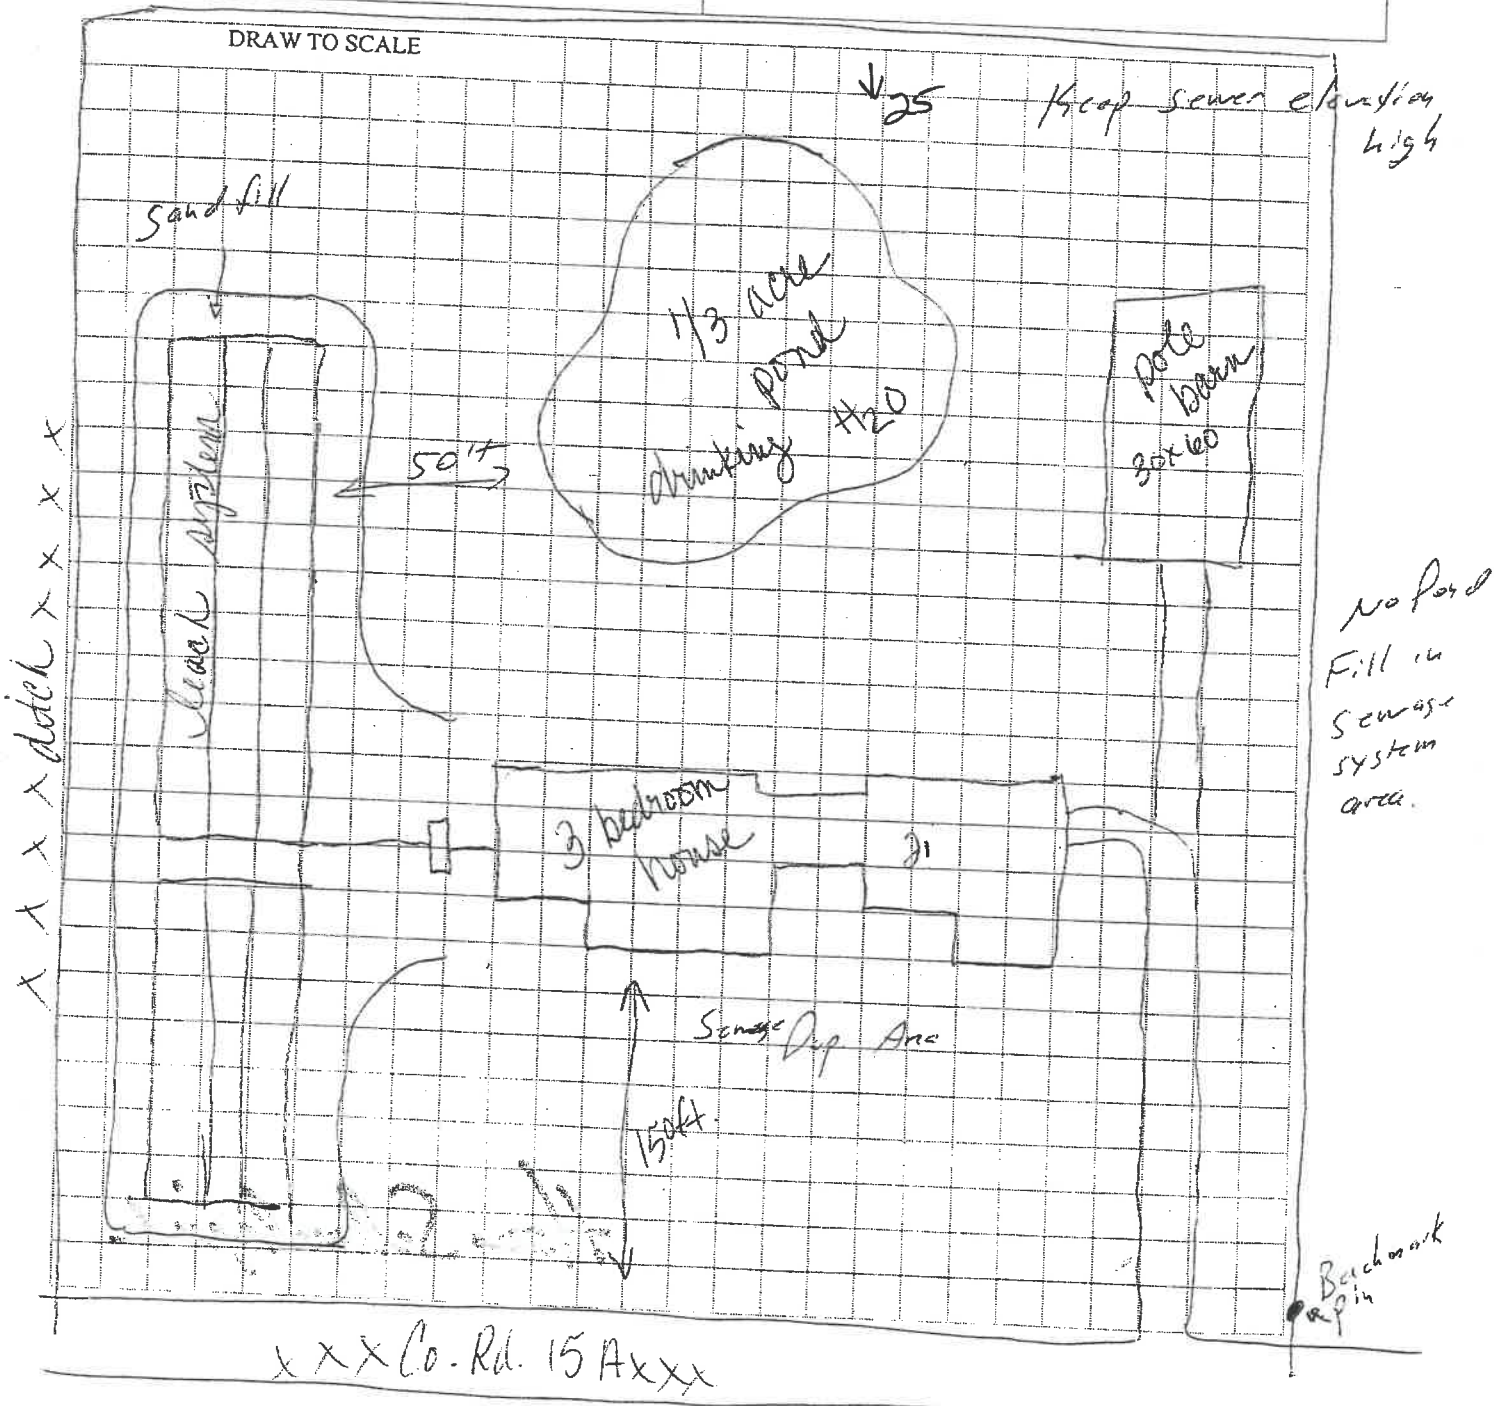 DRAW TO SCALE
↓ 25
Keep sewer elevation
high
sand fill
1/3 acre
pond
drinking H2O
pole
barn
30x60
50 ft
leach system
x x x x ditch x x x x x
No Pond
Fill in
sewage
system
area.
3 bedroom
house
Sewage Dup Area
150ft.
Benchmark
pin
x x x Co. Rd. 15 A x x x